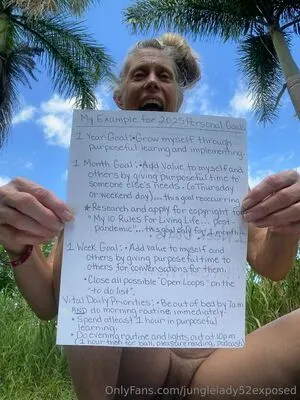 My Example for 2025 Personal Goals
1 Year Goal: • Grow myself through
purposeful learning and implementing.
1 Month Goal: • Add value to myself and
others by giving purposeful time to
someone else's needs. (a Thursday
or weekend day)... this goal reoccurring
* Research and apply for copyright for
"My 10 Rules For Living Life... Don't
pandemic"... this goal only for 1 month
1 Week Goal: • Add value to myself and
others by giving purposeful time to
others for conversations for them.
• Close all possible "Open Loops" on the
"to do list".
Vital Daily Priorities: • Be out of bed by 7am
AND do morning routine immediately.
• Spend at least 1 hour in purposeful
learning.
• Do evening routine and lights out at 10pm
(1 hour then for ball, pleasure reading, podcast)
OnlyFans.com/junglelady52exposed